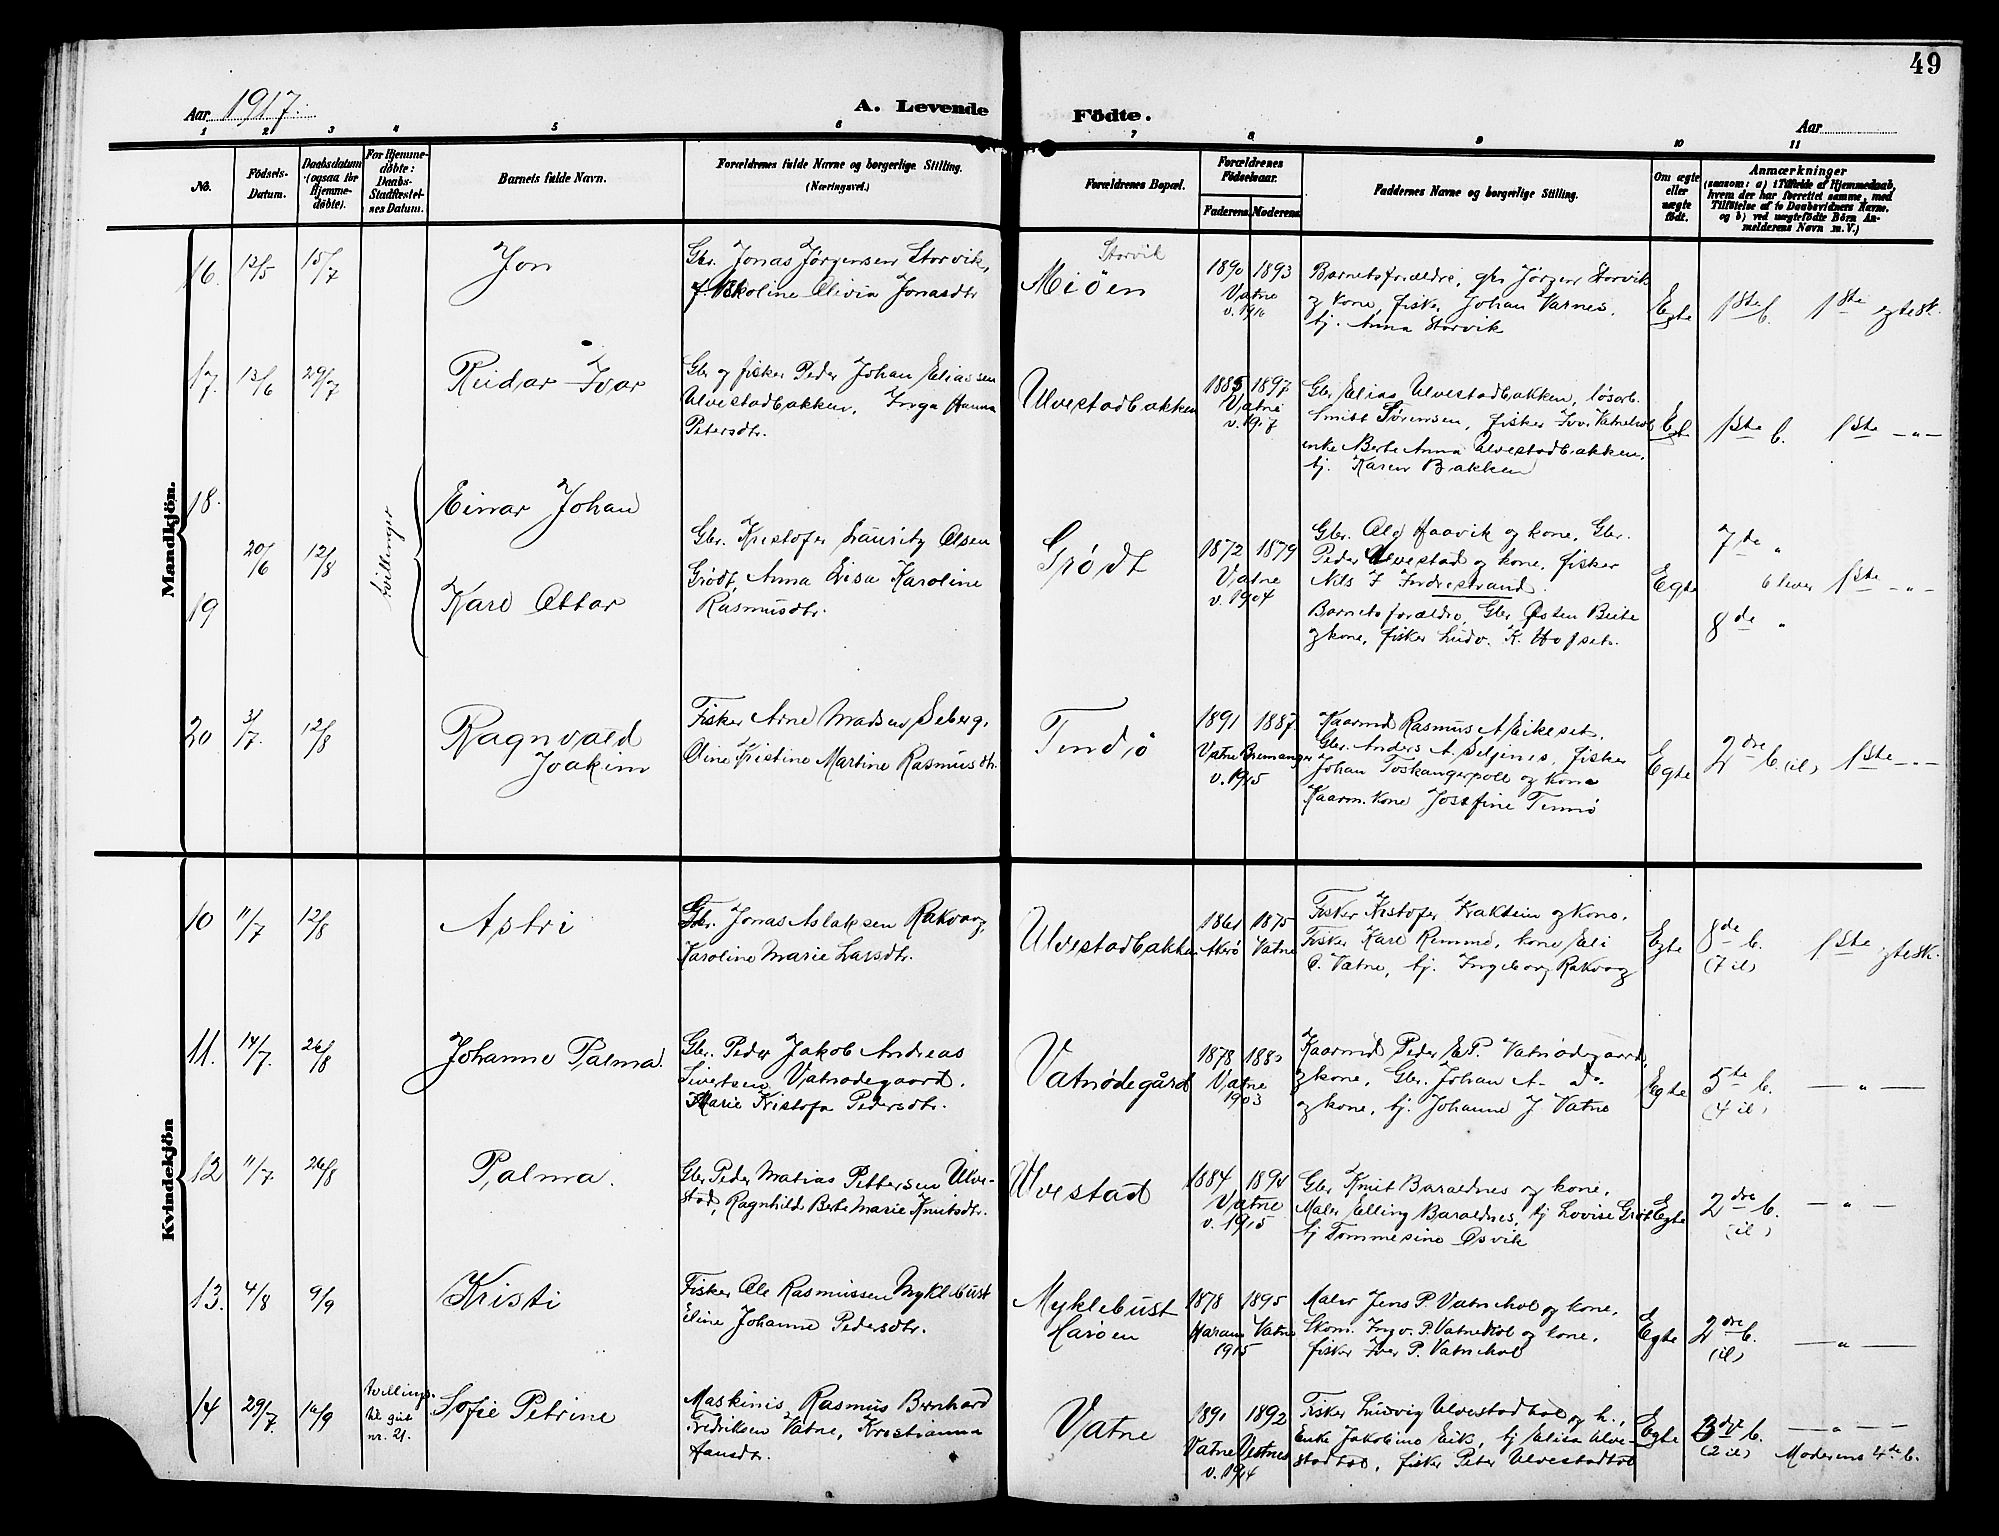 49
Aar 1917.
A. Levende Födte.
Aar
1 2 3 4 5 6 7 8 9 10 11
No.
Födsels-Datum.
Daabsdatum (ogsaa for Hjemme-döbte).
For Hjemme-döbte: Daabs-Stadfæstel-ses Datum.
Barnets fulde Navn.
Forældrenes fulde Navne og borgerlige Stilling. (Næringsvei.)
Forældrenes Bopæl.
Forældrenes Födselsaar.
Faderens. Moderens.
Faddernes Navne og borgerlige Stilling.
Om ægte eller uægte födt.
Anmærkninger
(saasom: a) i Tilfælde af Hjemmedaab, hvem der har forrettet samme, med Tilföielse af to Daabsvidners Navne, og b) ved uægtefödte Börn Anmelderens Navn m. V.)
Mandkjön.
16. 12/5 15/7 Jon
Gbr. Jonas Jørgensen Storvik,
Nikoline Olivia Jonasdtr
Storvik
Miöen
1890 1893
Vatne
v. 1916
Barnets forældre, gbr Jörgen Storvik
og kone, fisker Johan Varnes,
tj. Anna Storvik
Egte
1ste b. 1ste egtesk.
17. 13/6 29/7 Reidar Ivar
Gbr og fisker Peder Johan Eliassen
Ulvestadbakken, Inga Hanna
Petersdtr.
Ulvestadbakken
1885 1897
Vatne
v. 1917
Gbr Elias Ulvestadbakken, løsarb.
Smitt Sørensen, fisker Ivar Vatnehol
enke Berte Anna Ulvestadbakken,
tj. Karen Bakken
Egte
1ste b. 1ste -"-
18. Einar Johan
20/6 12/8 tvillinger
19 Karl Ottar
Gbr. Kristofer Lauritz Olsen
Grødt, Anna Elisa Karoline
Rasmusdtr.
Grødt
1872 1879
Vatne
v. 1904
Gbr. Ole Haavik og kone, Gbr.
Peder Ulvestad og kone, fisker
Nils J Fordrestrand.
Barnets forældre, Gbr Østen Beite
og kone, fisker Ludv. K. Hofset.
Egte
7de "
6 lever 1ste -"-
8de "
20 3/7. 12/8 Ragnvald
Joakim
Fisker Arne Madsen Seberg,
Oline Kristine Martine Rasmusdtr.
Tendø
1891 1887.
Vatne Bremanger
v. 1915
Kaarmd Rasmus A Eikeset,
Gbr. Anders A. Seljenes, fisker
Johan Toskangerpoll og kone
Kaarm. kone Josefine Tennø
Egte
2dre b. (il) 1ste -"-
Kvindekjön
10 11/7 12/8 Astri
Gbr. Jonas Aslaksen Rakvaag,
Karoline Marie Larsdtr.
Ulvestadbakken
1861 1875
Akerø Vatne
Fisker Kristofer Fraktein og kone,
Fisker Karl Remmø, kone Eli
C. Vatne, tj. Ingeborg Rakvaag
Egte
8de b. 1ste egtesk.
(7 il)
11. 14/7. 26/8 Johanne Palma.
Gbr. Peder Jakob Andreas
Sivertsen Vatnødegaard.
Marie Kristofa Pedersdtr.
Vatnødegård
1878 1880
Vatne
1903
Kaarmd Peder E.P. Vatnødegaard,
og kone, Gbr. Johan A- do-
og kone, tj. Johanne J. Vatne
Egte
5te b. -"-
(4 il)
12 11/7. 26/8 Palma.
Gbr Peder Matias Pettersen Ulve-
stad, Ragnhild Berte Marie Knutsdtr.
Ulvestad
1884 1894
Vatne
v. 1915
Gbr Knut Baraldnes og kone,
Maler Elling Baraldnes, tj Lovise Grøt
tj Tommesine Osvik
Egte
2dre b. -"-
(il)
13. 4/8 9/9 Kristi
Fisker Ole Rasmussen Myklebust
Eline Johanne Pedersdtr.
Myklebust
Harøen
1878 1895
Haram Vatne
1915
Maler Jens P. Vatnehol og kone,
Skom. Ingv. P. Vatnehol og kone,
fisker Iver P. Vatnehol
Egte
2dre b. -"-
(il)
14 29/7. 16/9 tvilling
nr. 21.
Sofie Petrine
Maskinis. Rasmus Bernhard
Fredriksen Vatne, Kristianna
Hansdtr.
Vatne
1891 1892
Vatne Vestnes
v. 1914
Fisker Ludvig Ulvestadhol og k.,
Enke Jakobine Eik, tj Elisa Ulve-
stadhol, fisker Peter Ulvestadhol
Egte
3dje b. -"-
(2 il) Moderens 4de b.